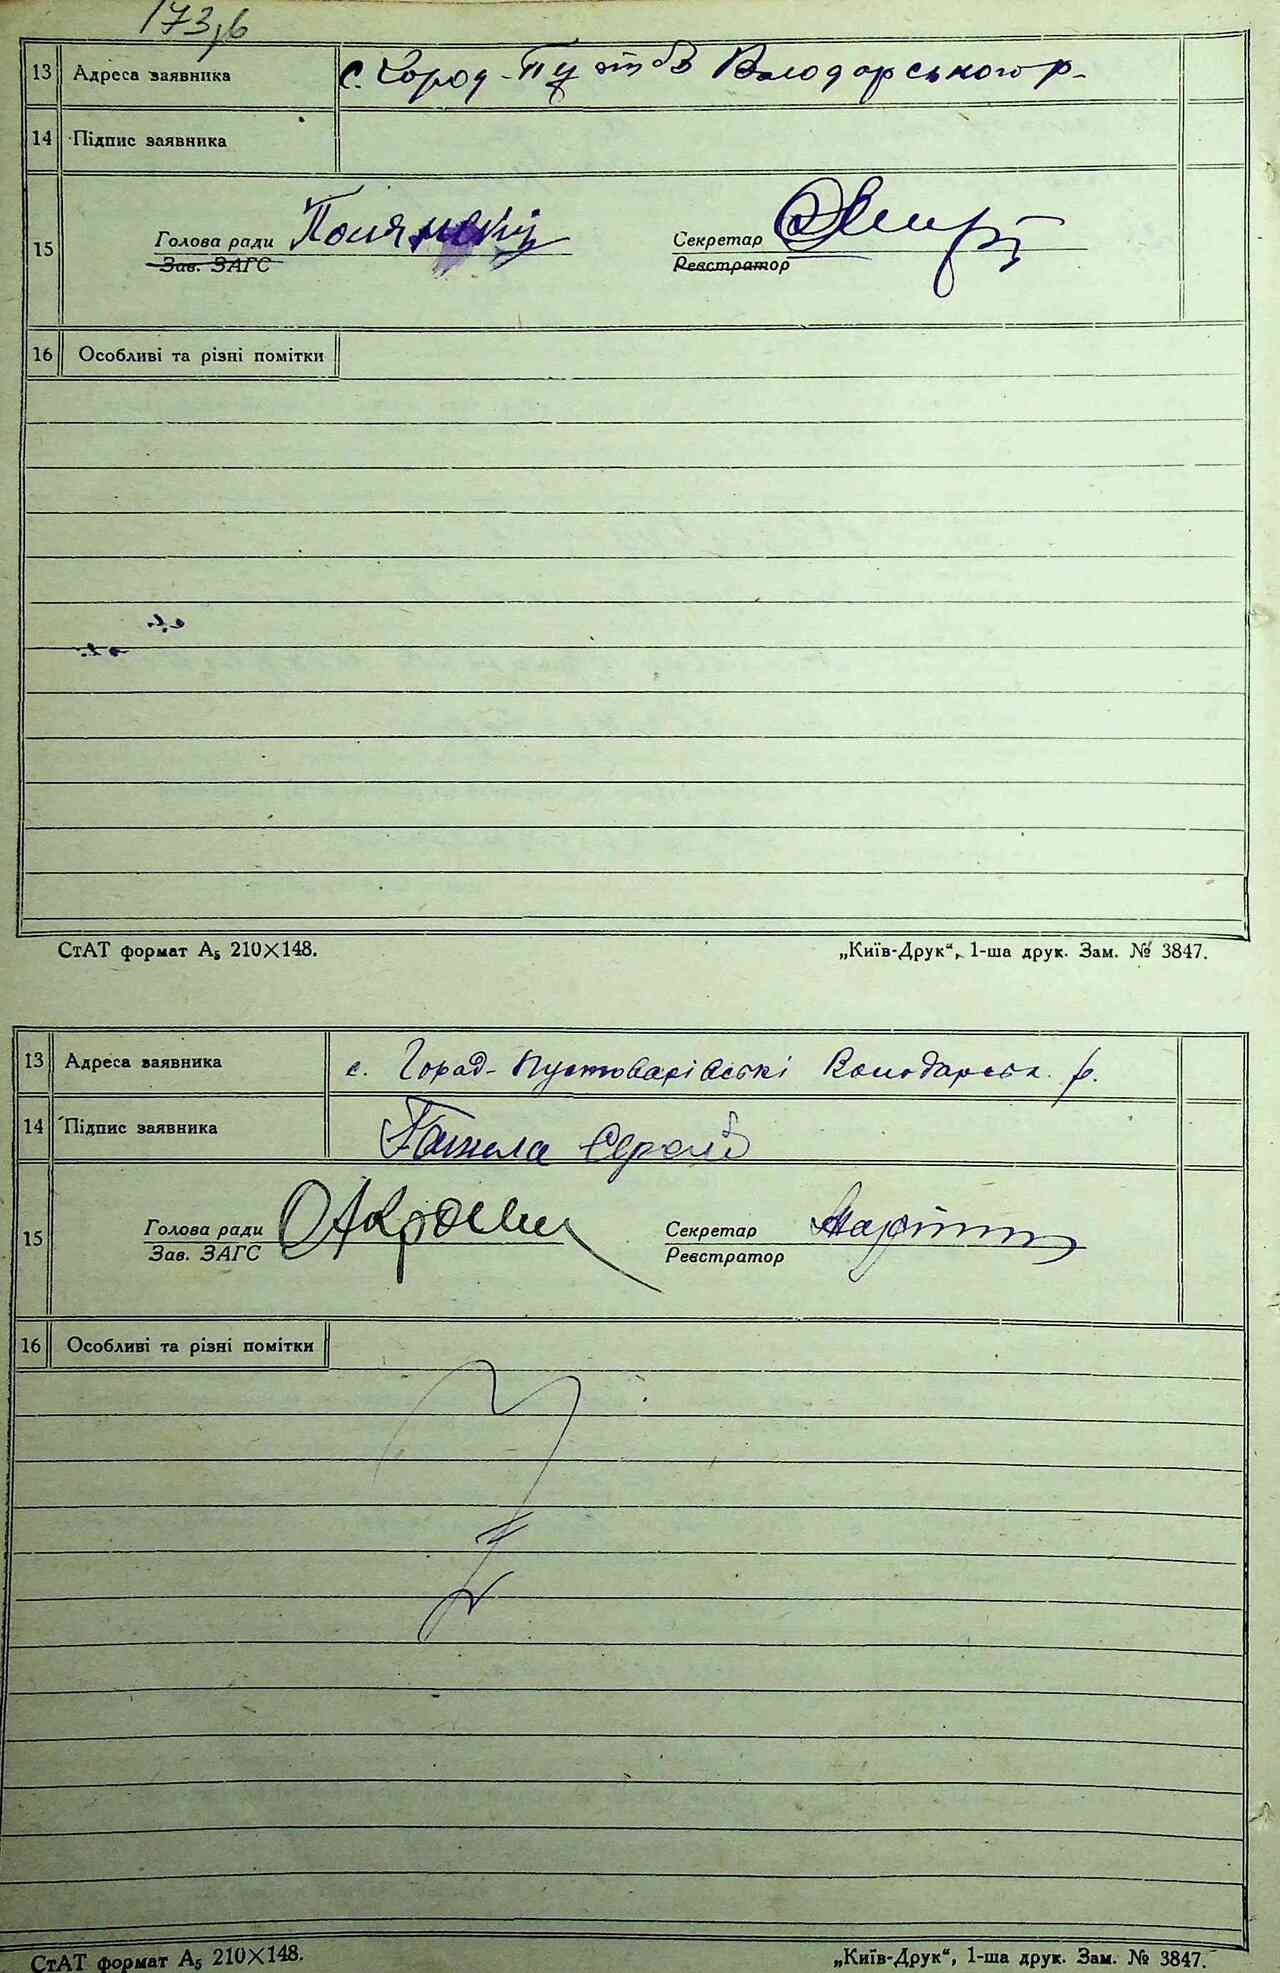 173,в
13 Адреса заявника с. Город-Пустов Володарського р-
14 Підпис заявника
15 Голова ради Полянскі Секретар
Зав. ЗАГС Реєстратор
16 Особливі та різні помітки
СтАТ формат А5 210×148. „Київ-Друк“, 1-ша друк. Зам. № 3847.
13 Адреса заявника с. Город-Пустоварівські Володарськ. р.
14 Підпис заявника
15 Голова ради Секретар
Зав. ЗАГС Реєстратор
16 Особливі та різні помітки
СтАТ формат А5 210×148. „Київ-Друк“, 1-ша друк. Зам. № 3847.